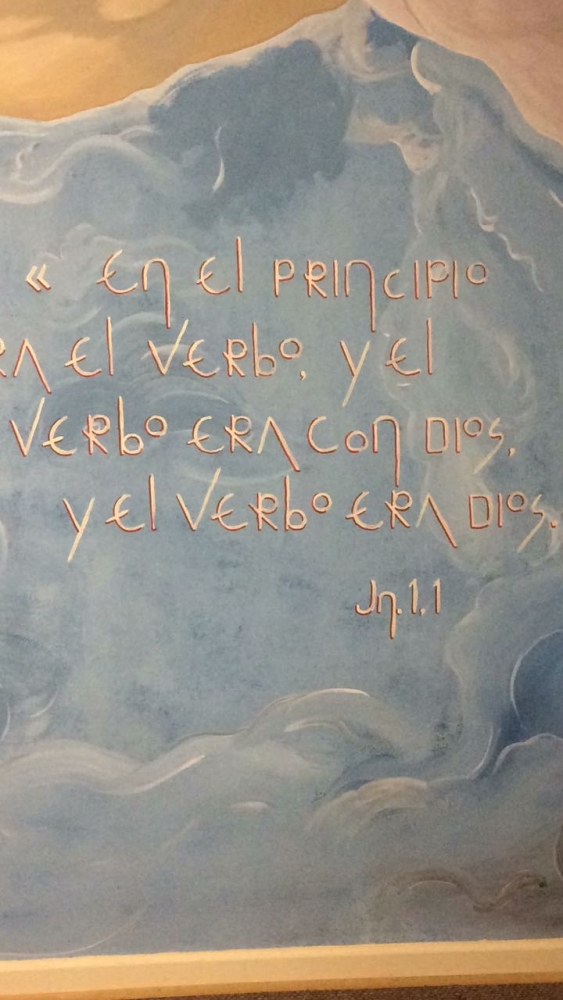 « En el principio
era el Verbo, y el
Verbo era con Dios,
y el Verbo era Dios.
Jn. 1, 1